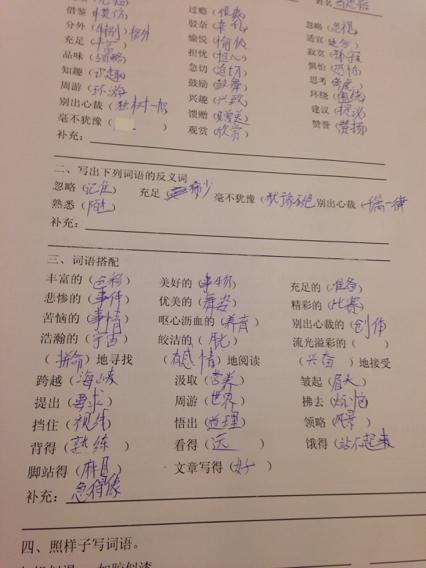 借鉴（模仿） 过瘾（
分外（特别）格外 驳杂（ 忽略（忽视）
充足（ 愉悦（愉快） 适宜（适合）
品味（ 担忧（担心） 寂寞（
知趣（识趣） 急切（迫切） 惧怕（恐怕）
周游（环游） 鼓励（鼓舞） 思考（考虑）
别出心裁（独树一帜 兴趣（兴致） 环绕（围绕）
毫不犹豫（ ） 馈赠（赠送） 建议（提议）
补充： 观赏（欣赏） 赞誉（赞扬）
二、写出下列词语的反义词
忽略（记住） 充足 稀少 毫不犹豫（犹豫不绝 别出心裁（千篇一律
熟悉（陌生）
补充：
三、词语搭配
丰富的（色彩） 美好的（事物） 充足的（准备）
悲惨的（事件） 优美的（舞姿） 精彩的（比赛）
苦恼的（事情） 呕心沥血的（养育） 别出心裁的（创作）
浩瀚的（宇宙） 皎洁的（月光） 流光溢彩的（ ）
（拼命）地寻找 （有感情）地阅读 （兴奋）地接受
跨越（海峡） 汲取（营养） 皱起（眉头）
提出（要求） 周游（世界） 拂去（
挡住（视线） 悟出（道理） 领略（风景）
背得（熟练） 看得（远） 饿得（站不起来
脚站得（麻） 文章写得（好）
补充：急得像
四、照样子写词语。
如胶似漆